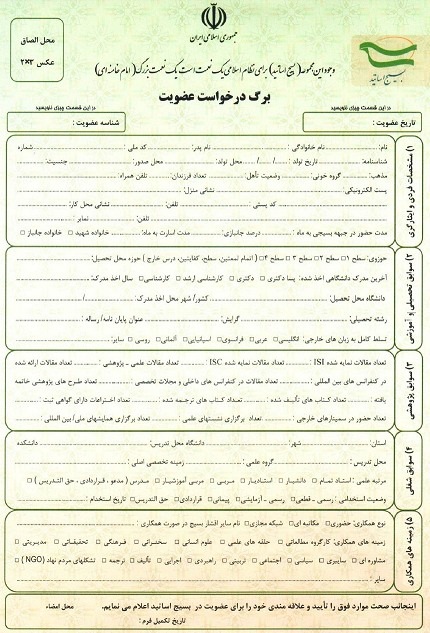 جمهوری اسلامی ایران
محل الصاق
عکس ۳×۲
بسیج اساتید
وجود این مجموعه (بسیج اساتید) برای نظام اسلامی یک نعمت است یک نعمت بزرگ (امام خامنه ای)
برگ درخواست عضویت
در این قسمت چیزی ننویسید
در این قسمت چیزی ننویسید
تاریخ عضویت :
شناسه عضویت :
۱) مشخصات فردی و ایثارگری
نام: نام خانوادگی : نام پدر: کد ملی : شماره
شناسنامه: تاریخ تولد : / / محل تولد: محل صدور: جنسیت:
مذهب: گروه خونی: وضعیت تأهل: تعداد فرزندان: تلفن همراه:
پست الکترونیکی: نشانی منزل:
کد پستی : تلفن: نشانی محل کار:
تلفن: نمابر :
مدت حضور در جبهه بسیجی به ماه : درصد جانبازی: مدت اسارت به ماه: خانواده شهید □ خانواده جانباز □
۲) سوابق تحصیلی و آموزشی
حوزوی: سطح ۱ □ سطح ۲ □ سطح ۳ □ سطح ۴ □ ( اتمام لمعتین، سطح، کفایتین، درس خارج ) حوزه محل تحصیل:
آخرین مدرک دانشگاهی اخذ شده: پسا دکتری □ دکتری □ کارشناسی ارشد □ کارشناسی □ سال اخذ مدرک:
دانشگاه محل تحصیل: کشور/ شهر محل اخذ مدرک: /
رشته تحصیلی: گرایش: عنوان پایان نامه/ رساله :
تسلط کامل به زبان های خارجی: انگلیسی □ عربی □ فرانسوی □ اسپانیایی □ آلمانی □ روسی □ سایر:
۳) سوابق پژوهشی
تعداد مقالات نمایه شده ISI : تعداد مقالات نمایه شده ISC : تعداد مقالات علمی ـ پژوهشی : تعداد مقالات ارائه شده
در کنفرانس های بین المللی : تعداد مقالات در کنفرانس های داخلی و مجلات تخصصی : تعداد طرح های پژوهشی خاتمه
یافته : تعداد کتاب های تألیف شده : تعداد کتاب های ترجمه شده : تعداد اختراعات دارای گواهی ثبت :
تعداد حضور در سمینارهای خارجی : تعداد برگزاری نشستهای علمی : تعداد برگزاری همایشهای ملی/ بین المللی :
۴) سوابق شغلی
استان: شهر: دانشگاه محل تدریس: دانشکده
محل تدریس : گروه علمی : زمینه تخصصی اصلی :
مرتبه علمی : استاد تمام □ دانشیار □ استادیار □ مربی □ مربی آموزشیار □ مدرس ( مدعو ، قراردادی ، حق التدریس ) □
وضعیت استخدامی : رسمی ـ قطعی □ رسمی ـ آزمایشی □ پیمانی □ قراردادی □ حق التدریس □ تاریخ استخدام :
۵) زمینه های همکاری
نوع همکاری: حضوری □ مکاتبه ای □ شبکه مجازی □ نام سایر اقشار بسیج در صورت همکاری :
زمینه های همکاری: کارگروه مطالعاتی □ حلقه های علمی □ علوم انسانی □ سخنرانی □ فرهنگی □ تحقیقاتی □ مدیریتی □
مشاوره ای □ سایبری □ سیاسی □ اجتماعی □ تربیتی □ راهبردی □ اجرایی □ تألیف □ ترجمه □ تشکلهای مردم نهاد (NGO) □
سایر :
اینجانب صحت موارد فوق را تأیید و علاقه مندی خود را برای عضویت در بسیج اساتید اعلام می نمایم. محل امضاء
تاریخ تکمیل فرم :